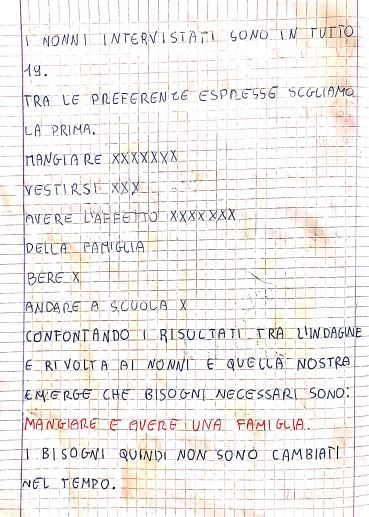 I NONNI INTERVISTATI SONO IN TUTTO
19.
TRA LE PREFERENZE ESPRESSE SCGLIAMO
LA PRIMA.
MANGIARE XXXXXXX
VESTIRSI XXX
AVERE L'AFFETTO XXXXXXX
DELLA FAMIGLIA
BERE X
ANDARE A SCUOLA X
CONFONTANDO I RISULTATI TRA L'INDAGINE
E RIVOLTA AI NONNI E QUELLA NOSTRA
EMERGE CHE BISOGNI NECESSARI SONO:
MANGIARE E AVERE UNA FAMIGLIA.
I BISOGNI QUINDI NON SONO CAMBIATI
NEL TEMPO.